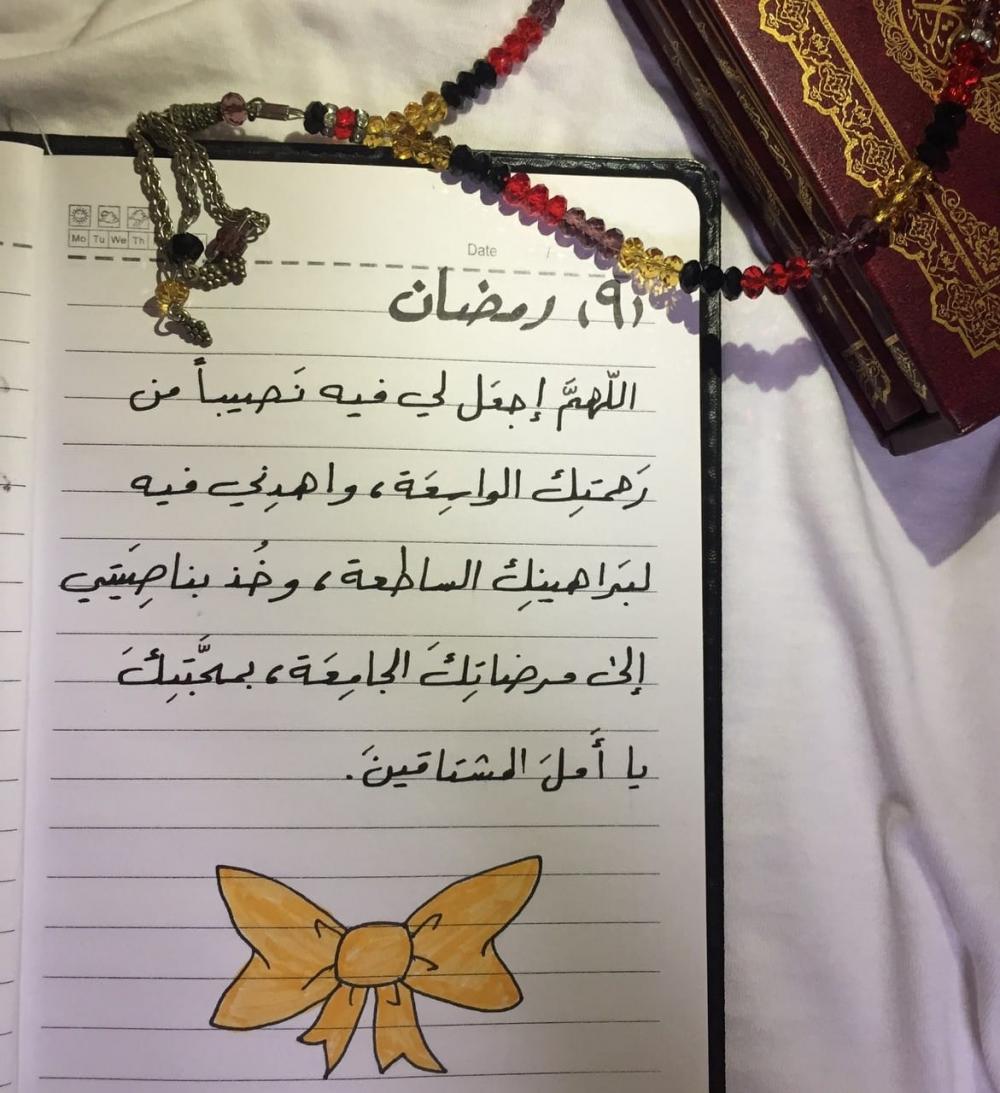 Mo Tu We Th
Date /
(٩) رمضان
اللّهمَّ إجعَل لي فيه نَصيباً من
رَحمتِكَ الواسِعَة، واهدِني فيه
لبَراهينِكَ الساطعة، وخُذ بناصِيَتي
إلىٰ مرضاتِكَ الجامِعَة، بمحَبَّتِكَ
يا أَملَ المشتاقينَ.